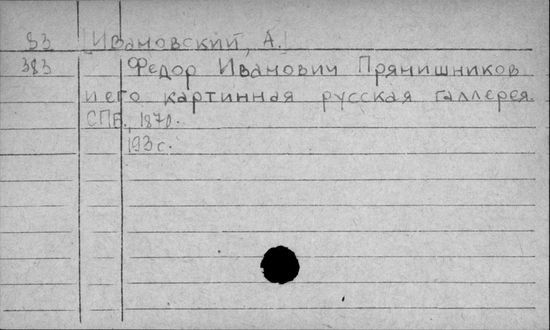 33 [Ивановский, А.]
383 Федор Иванович Прянишников
и его картинная русская галлерея.
СПБ., 1870.
193 с.